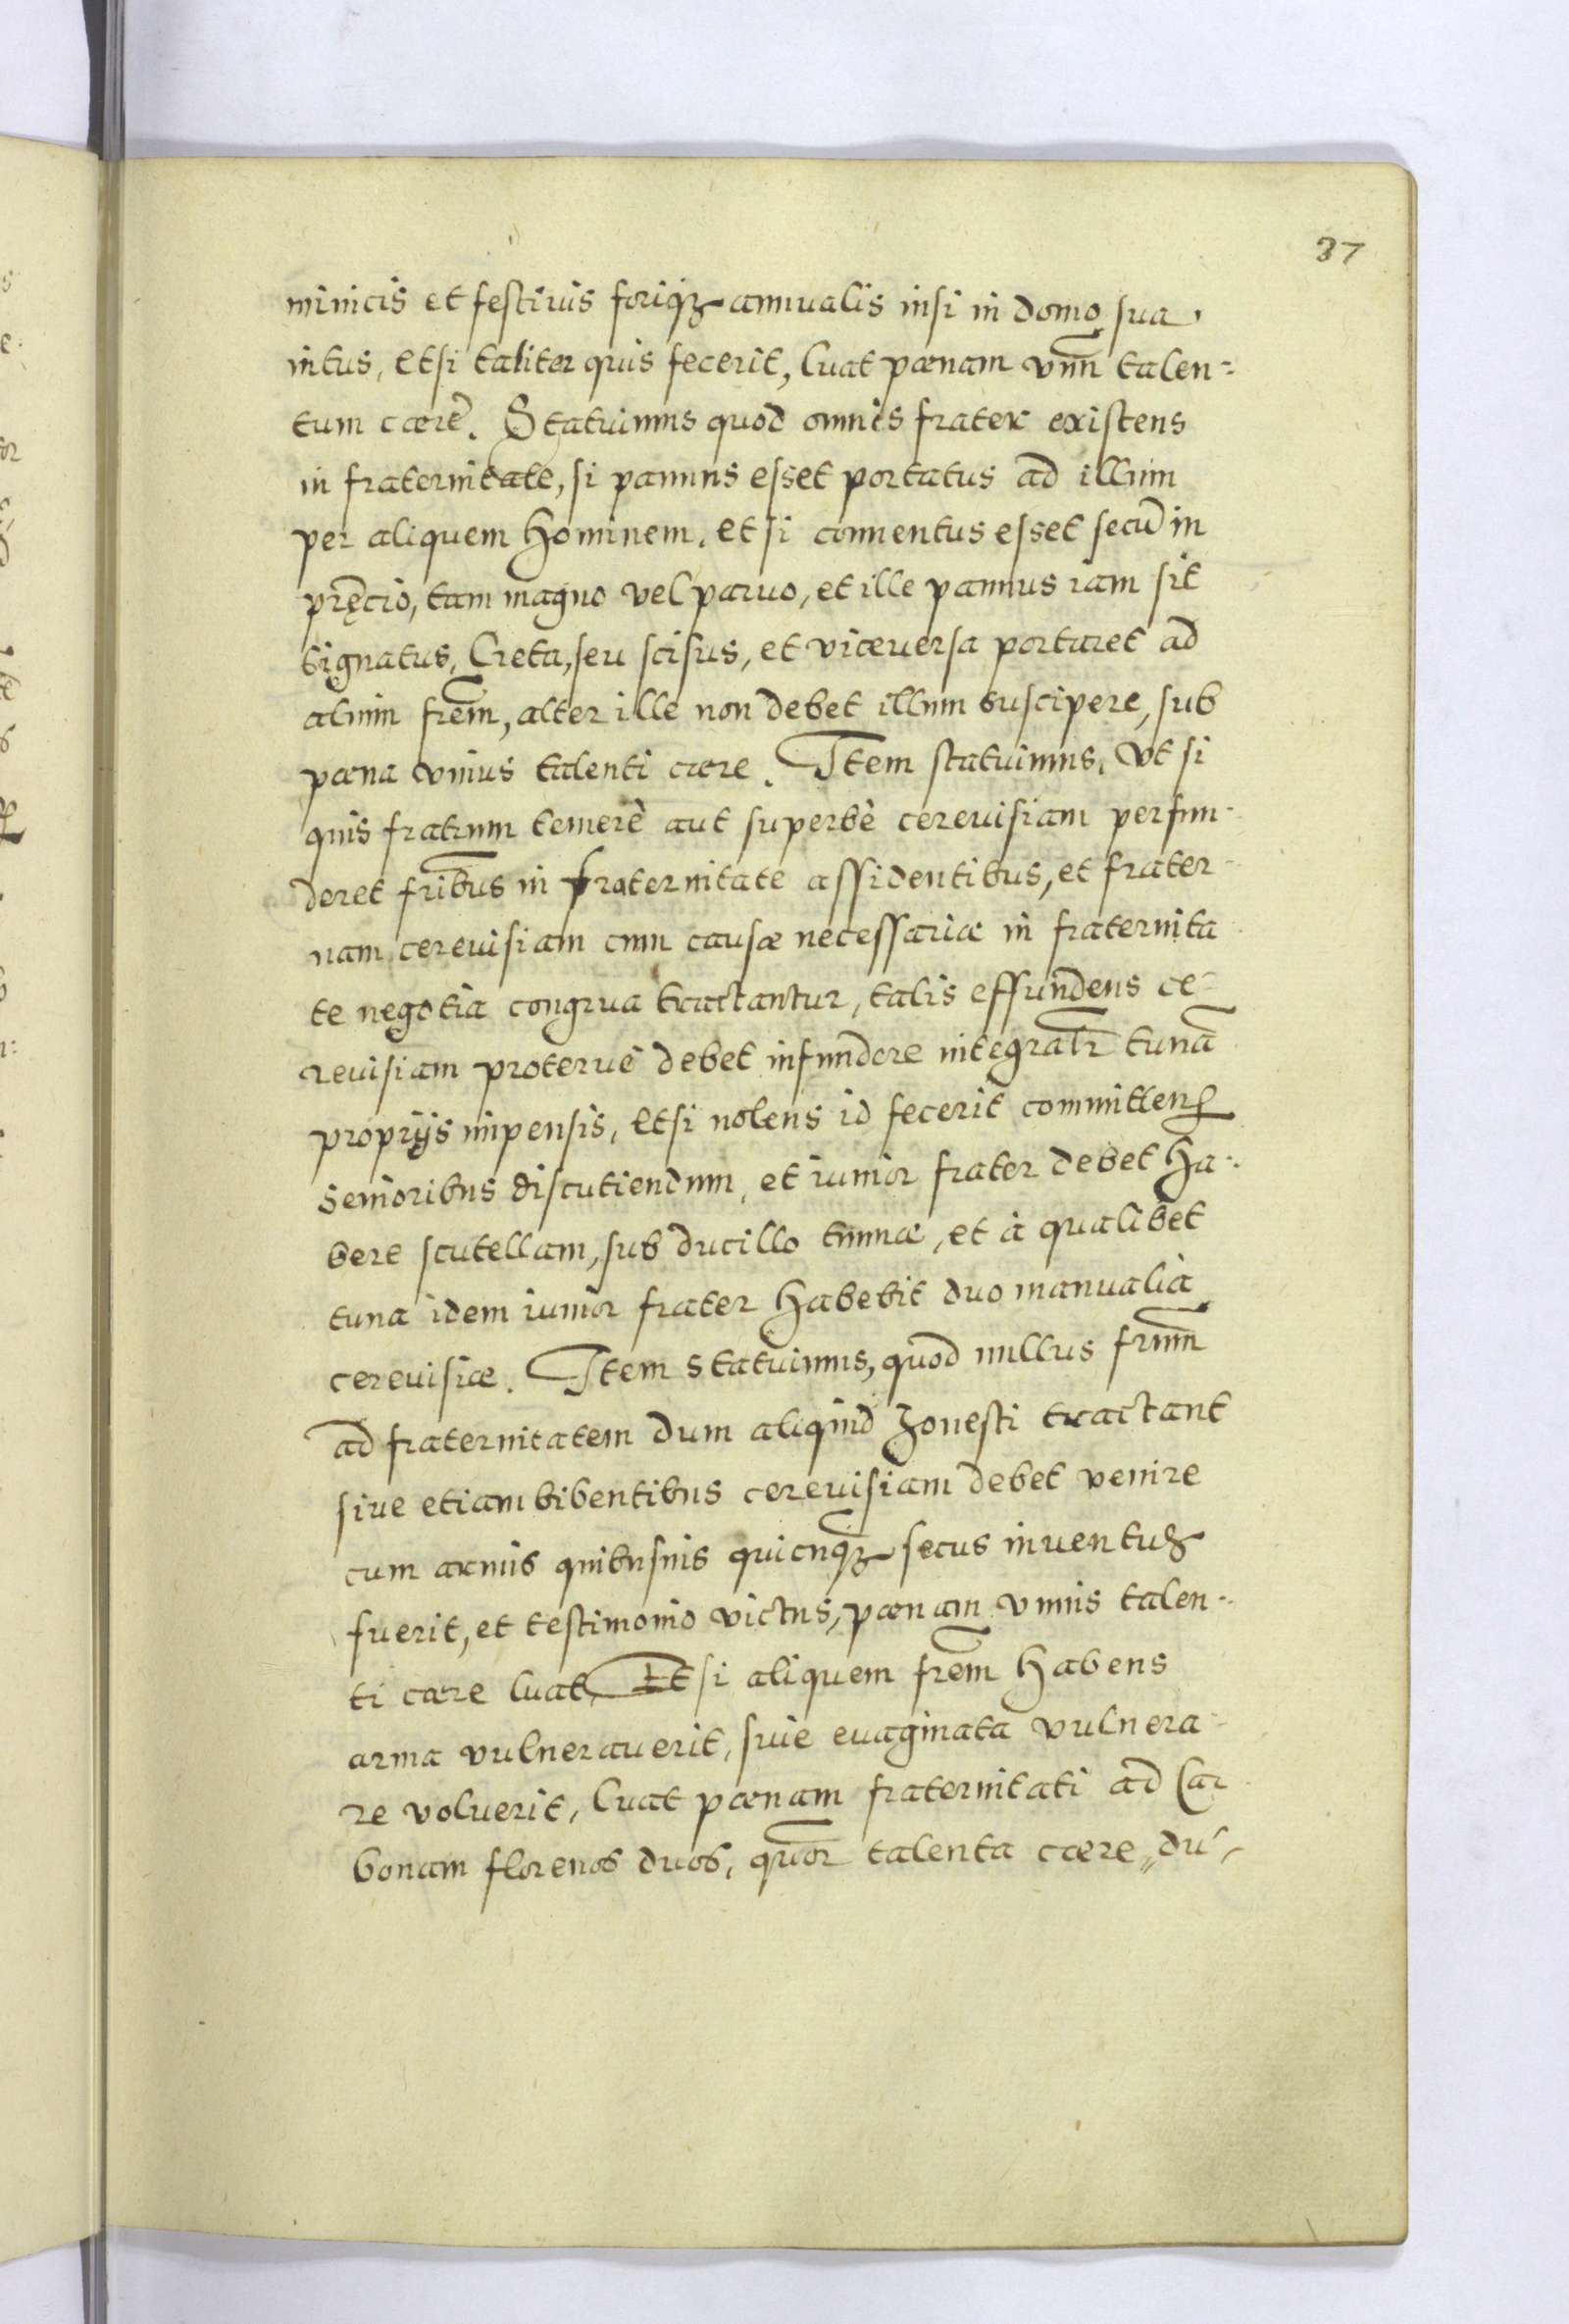 37
minicis et festiuis foriqꝫ annualis nisi in domo sua
intus, etsi taliter quis fecerit, luat pœnam vnũ talen=
tum cærè. Statuimus quod omnis frater existens
in fraternitate, si pannus esset portatus ad illum
per aliquem hominem, et si conuentus esset secũ in
pręcio, tam magno vel paruo, et ille pannus iam sit
signatus, Creta, seu scisus, et viceuersa portaret ad
alium frẽm, alter ille non debet illum suscipere, sub
pœna vnius talenti cære. Item statuimus, vt si
quis fratrum temerè aut superbè cereuisiam perfun=
deret fribus in fraternitate assidentibus, et frater=
nam cereuisiam cum causæ necessariæ in fraternita
te negotia congrua tractantur, talis effundens ce=
reuisiam proteruè debet infundere integralr̃ tunã
proprijs impensis, etsi nolens id fecerit committens
senioribus discutiendum, et iunior frater debet ha=
bere scutellam, sub ducillo tunnæ, et à qualibet
tuna idem iunior frater habebit duo manualia
cereuisiæ. Item statuimus, quod nullus frũm
ad fraternitatem dum aliquid honesti tractant
siue etiam bibentibus cereuisiam debet venire
cum armis quibusuis quicunqꝫ secus inuentus
fuerit, et testimonio victus, pœnam vnius talen=
ti cære luat. Et si aliquem frẽm habens
arma vulnerauerit, siue euaginata vulnera=
re voluerit, luat pœnam fraternitati ad Car
bonam florenos duos, quor talenta cære, du=